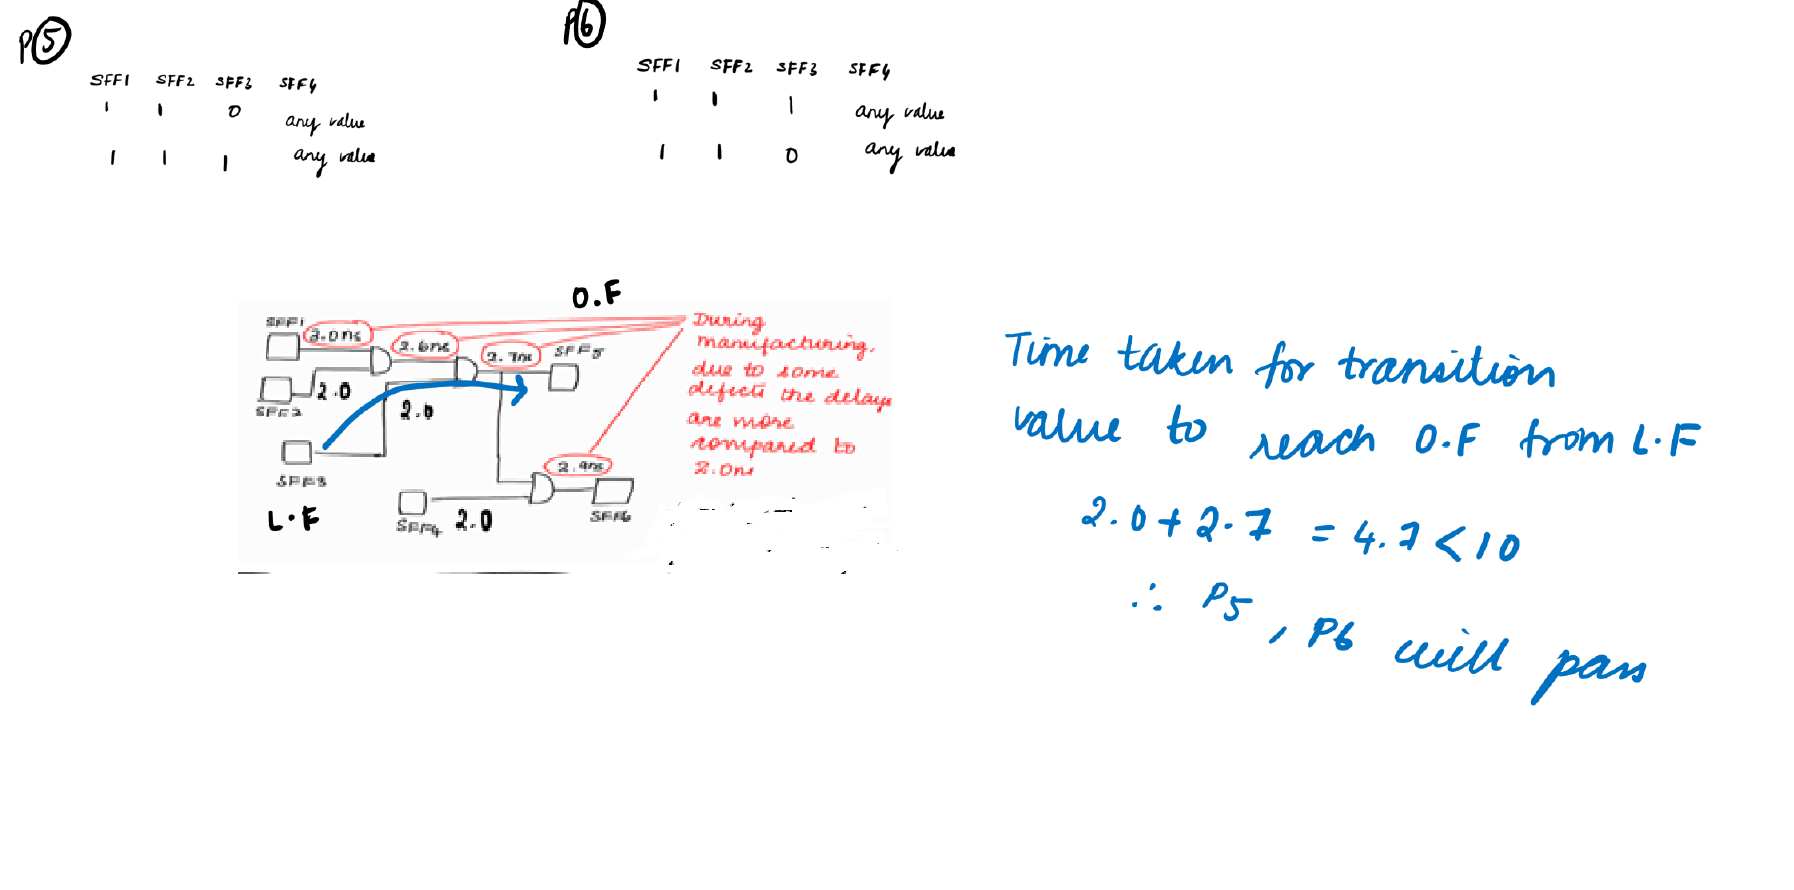 P5
SFF1 SFF2 SFF3 SFF4
1 1 0 any value
1 1 1 any value
P6
SFF1 SFF2 SFF3 SFF4
1 1 1 any value
1 1 0 any value
O.F
SFF1
3.0ns
2.6ns
2.7ns
SFF5
SFF2
2.0
2.0
SFF3
L.F
SFF4
2.0
2.9ns
SFF6
During
manufacturing,
due to some
defects the delays
are more
compared to
2.0ns
Time taken for transition
value to reach O.F from L.F
2.0 + 2.7 = 4.7 < 10
∴ P5, P6 will pass